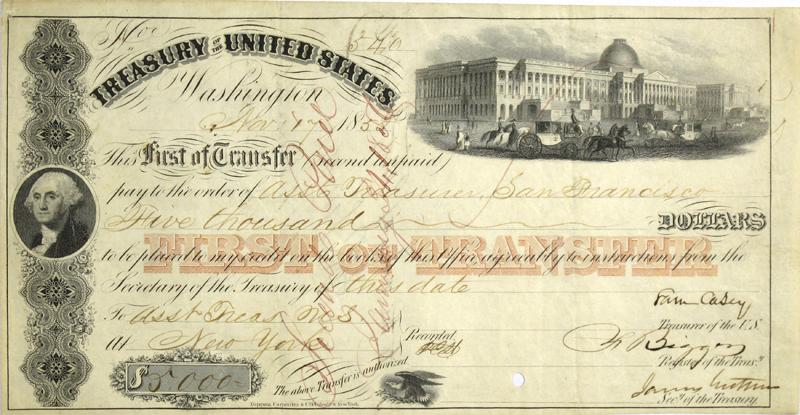 No. 546
TREASURY OF THE UNITED STATES
Washington
Nov 17 185
This First of Transfer (Second unpaid)
pay to the order of Asst Treasurer, San Francisco
Five thousand DOLLARS
FIRST OF TRANSFER
to be placed to my credit on the books of this Office agreeably to instructions from the
Secretary of the Treasury of this date
Sam Casey
Treasurer of the U.S.
To Asst Treas
at New York
Recorded
F Bigger
Register of the Treasy
$5,000
The above Transfer is authorized
Secy of the Treasury